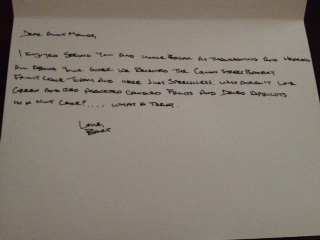 Dear Aunt Marion,
I enjoyed seeing you and Uncle Edgar at Thanksgiving and hearing
all about your sister. We received the Collin Street Bakery
Fruit Cake today and were just speechless. Who doesn't love
green and red assorted candied fruits and dried apricots
in a nut cake?.... What a treat.
Love,